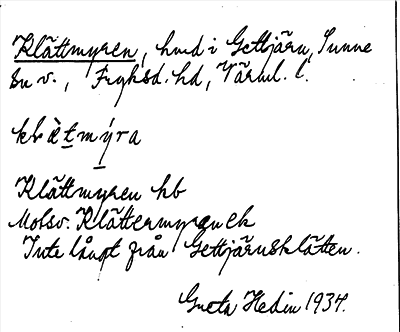 Klättmyren, hmd i Gettjärn, Sunne
sn v., Fryksd. hd, Värml. l.
klæ̀tmýra
Klättmyren kb
Motsv. Klättermyren ek
Inte långt från Gettjärnsklätten.
Greta Hedin 1934.